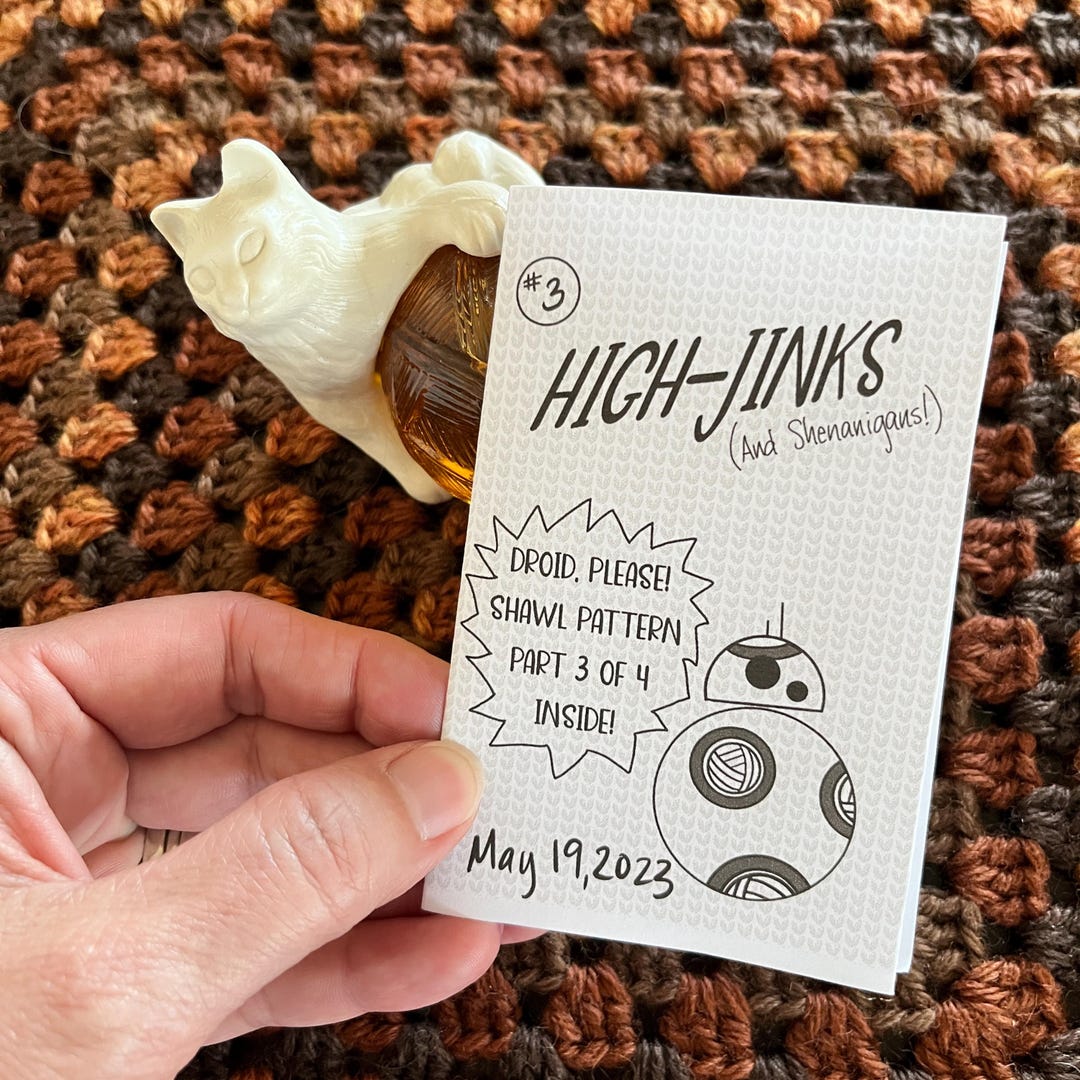 #3
HIGH-JINKS
(And Shenanigans!)
DROID, PLEASE!
SHAWL PATTERN
PART 3 OF 4
INSIDE!
May 19, 2023